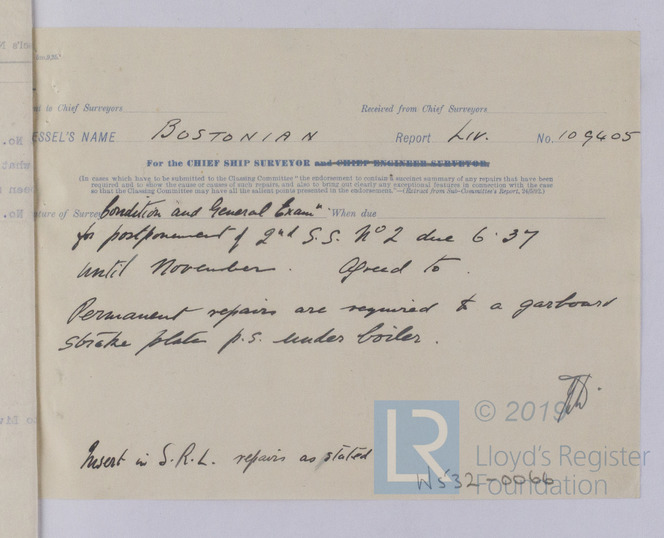 nt to Chief Surveyors Received from Chief Surveyors
ESSEL'S NAME BOSTONIAN Report Liv. No. 109405
For the CHIEF SHIP SURVEYOR and CHIEF ENGINEER SURVEYOR.
(In cases which have to be submitted to the Classing Committee "the endorsement to contain a succinct summary of any repairs that have been
required and to show the cause or causes of such repairs, and also to bring out clearly any exceptional features in connection with the case
so that the Classing Committee may have all the salient points presented in the endorsement."—(Extract from Sub-Committee's Report,
ature of Survey Condition and General Exam" When due
for postponement of 2nd S.S. No 2 due 6.37
until November. Agreed to.
Permanent repairs are required to a garboard
strake plate p.s. under boiler.
Insert in S.R.L. repairs as stated
© 2019
LR
Lloyd's Register
Foundation
W532-0066